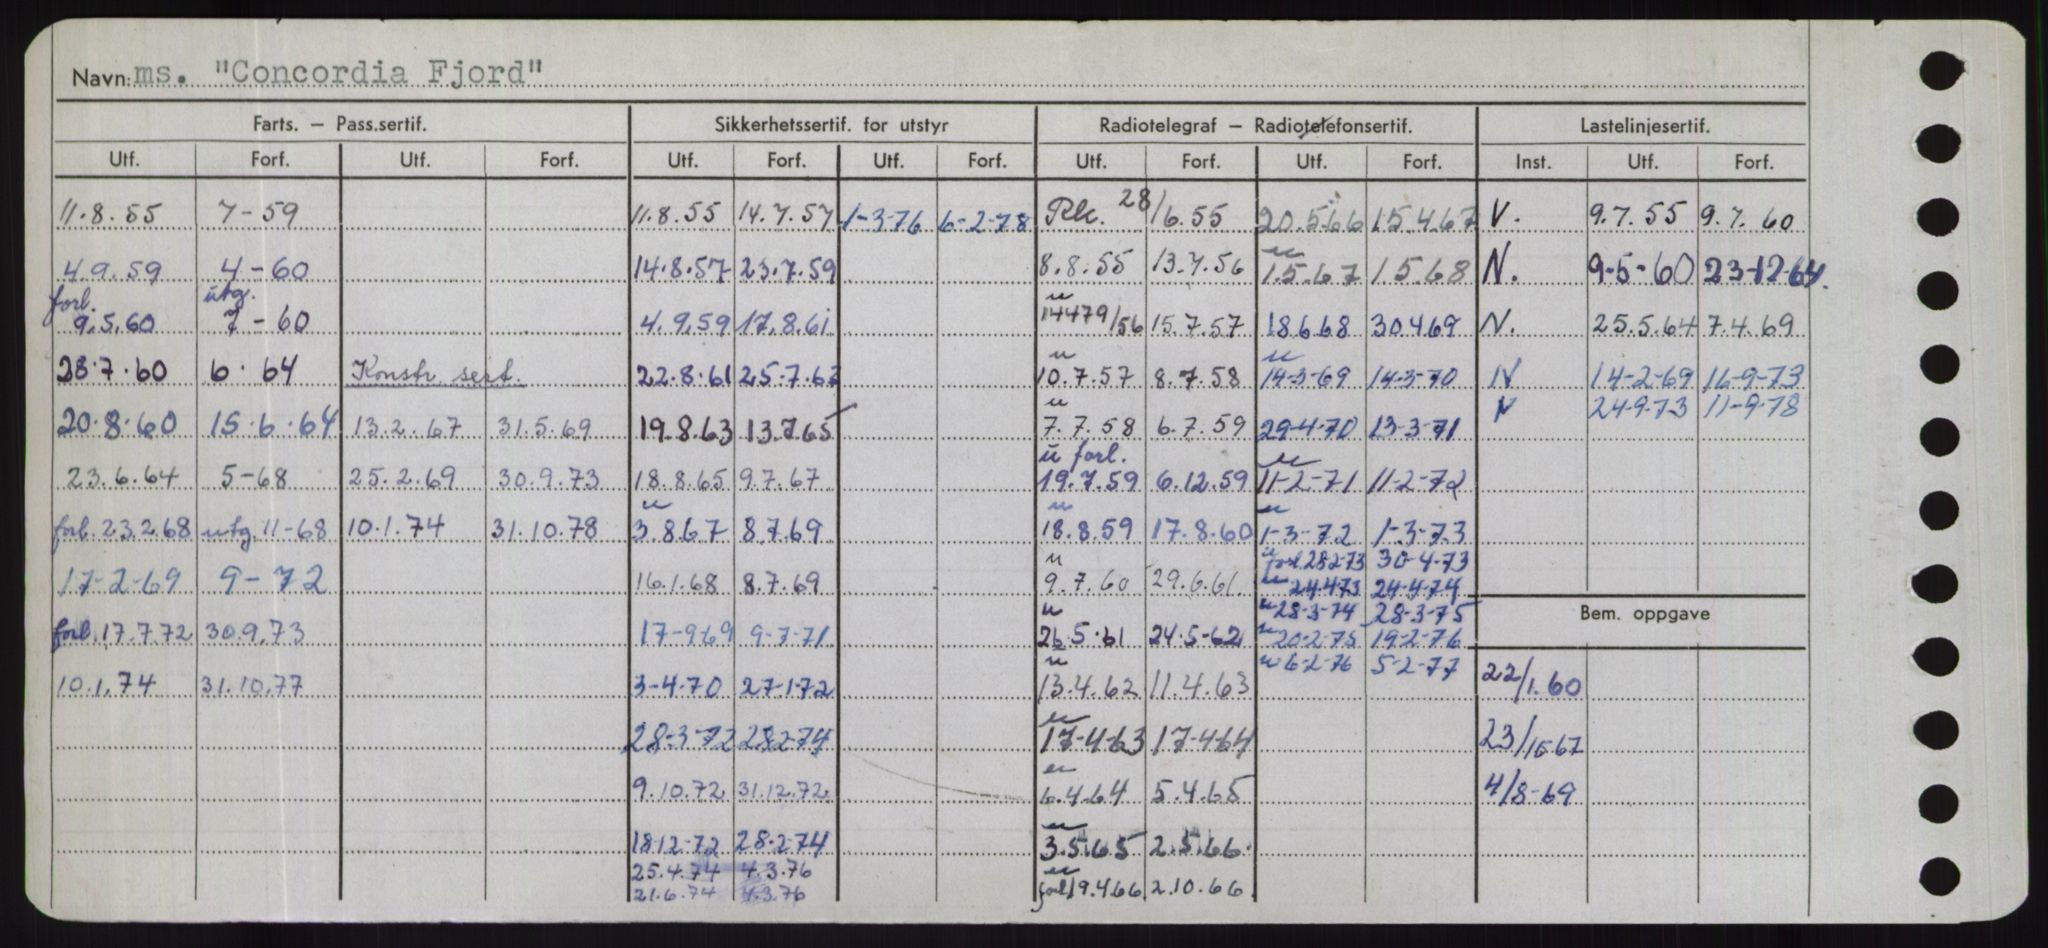 Navn: ms. "Concordia Fjord"
Farts. – Pass.sertif. Sikkerhetssertif. for utstyr Radiotelegraf – Radiotelefonsertif. Lastelinjesertif.
Utf. Forf. Utf. Forf. Utf. Forf. Utf. Forf. Utf. Forf. Utf. Forf. Inst. Utf. Forf.
11.8.55 7-59 11.8.55 14.7.57 1-3-76 6-2-78 Rk. 28/6.55 20.5.66 15.4.67 V. 9.7.55 9.7.60
4.9.59 4-60 14.8.57 23.7.59 8.8.55 13.7.56 u 1.5.67 1.5.68 N. 9-5-60 23-12-64.
forl. 9.5.60 utg. 7-60 4.9.59 17.8.61 u 14479/56 15.7.57 18.6.68 30.4.69 N. 25.5.64 7.4.69
28.7.60 6.64 Konstr. sert. 22.8.61 25-7.63 u 10.7.57 8.7.58 u 14-3-69 14-3-70 N 14-2-69 16-9-73
N 24-9-73 11-9-78
20.8.60 15.6.64 13.2.67 31.5.69 19.8.63 13.7.65 u 7.7.58 6.7.59 29-4-70 13-3-71
23.6.64 5-68 25.2.69 30.9.73 18.8.65 9.7.67 u forl. 19.7.59 6.12.59 u 11-2-71 11-2-72
forl. 23.2.68 utg. 11-68 10.1.74 31.10.78 u 3.8.67 8.7.69 u 18.8.59 17.8.60 u 1-3-72 1-3-73
u forl. 28-2-73 30-4-73
17-2-69 9-72 16.1.68 8.7.69 u 9.7.60 29.6.61. u 24.4.73 24-4-74
u 28-3-74 28-3-75 Bem. oppgave
forl. 17.7.72 30.9.73 17-9.69 9-7-71 u 26.5.61 24.5-62 u 20-2-75 19-2-76
u 6-2-76 5-2-77
10.1.74 31.10.77 3-4.70 27-1-72 u 13.4.62 11.4.63 22/1.60
28-3-72 28-2-74 u 17-4-63 17-4-64 23/10-67
9.10.72 31.12.72 u 6.4.64 5.4.65 4/8-69
18-12-72 28-2-74 u 3.5.65 2.5.66.
25.4.74 4.3.76
21.6.74 4.3.76 u forl. 19.4.66. 2.10.66.